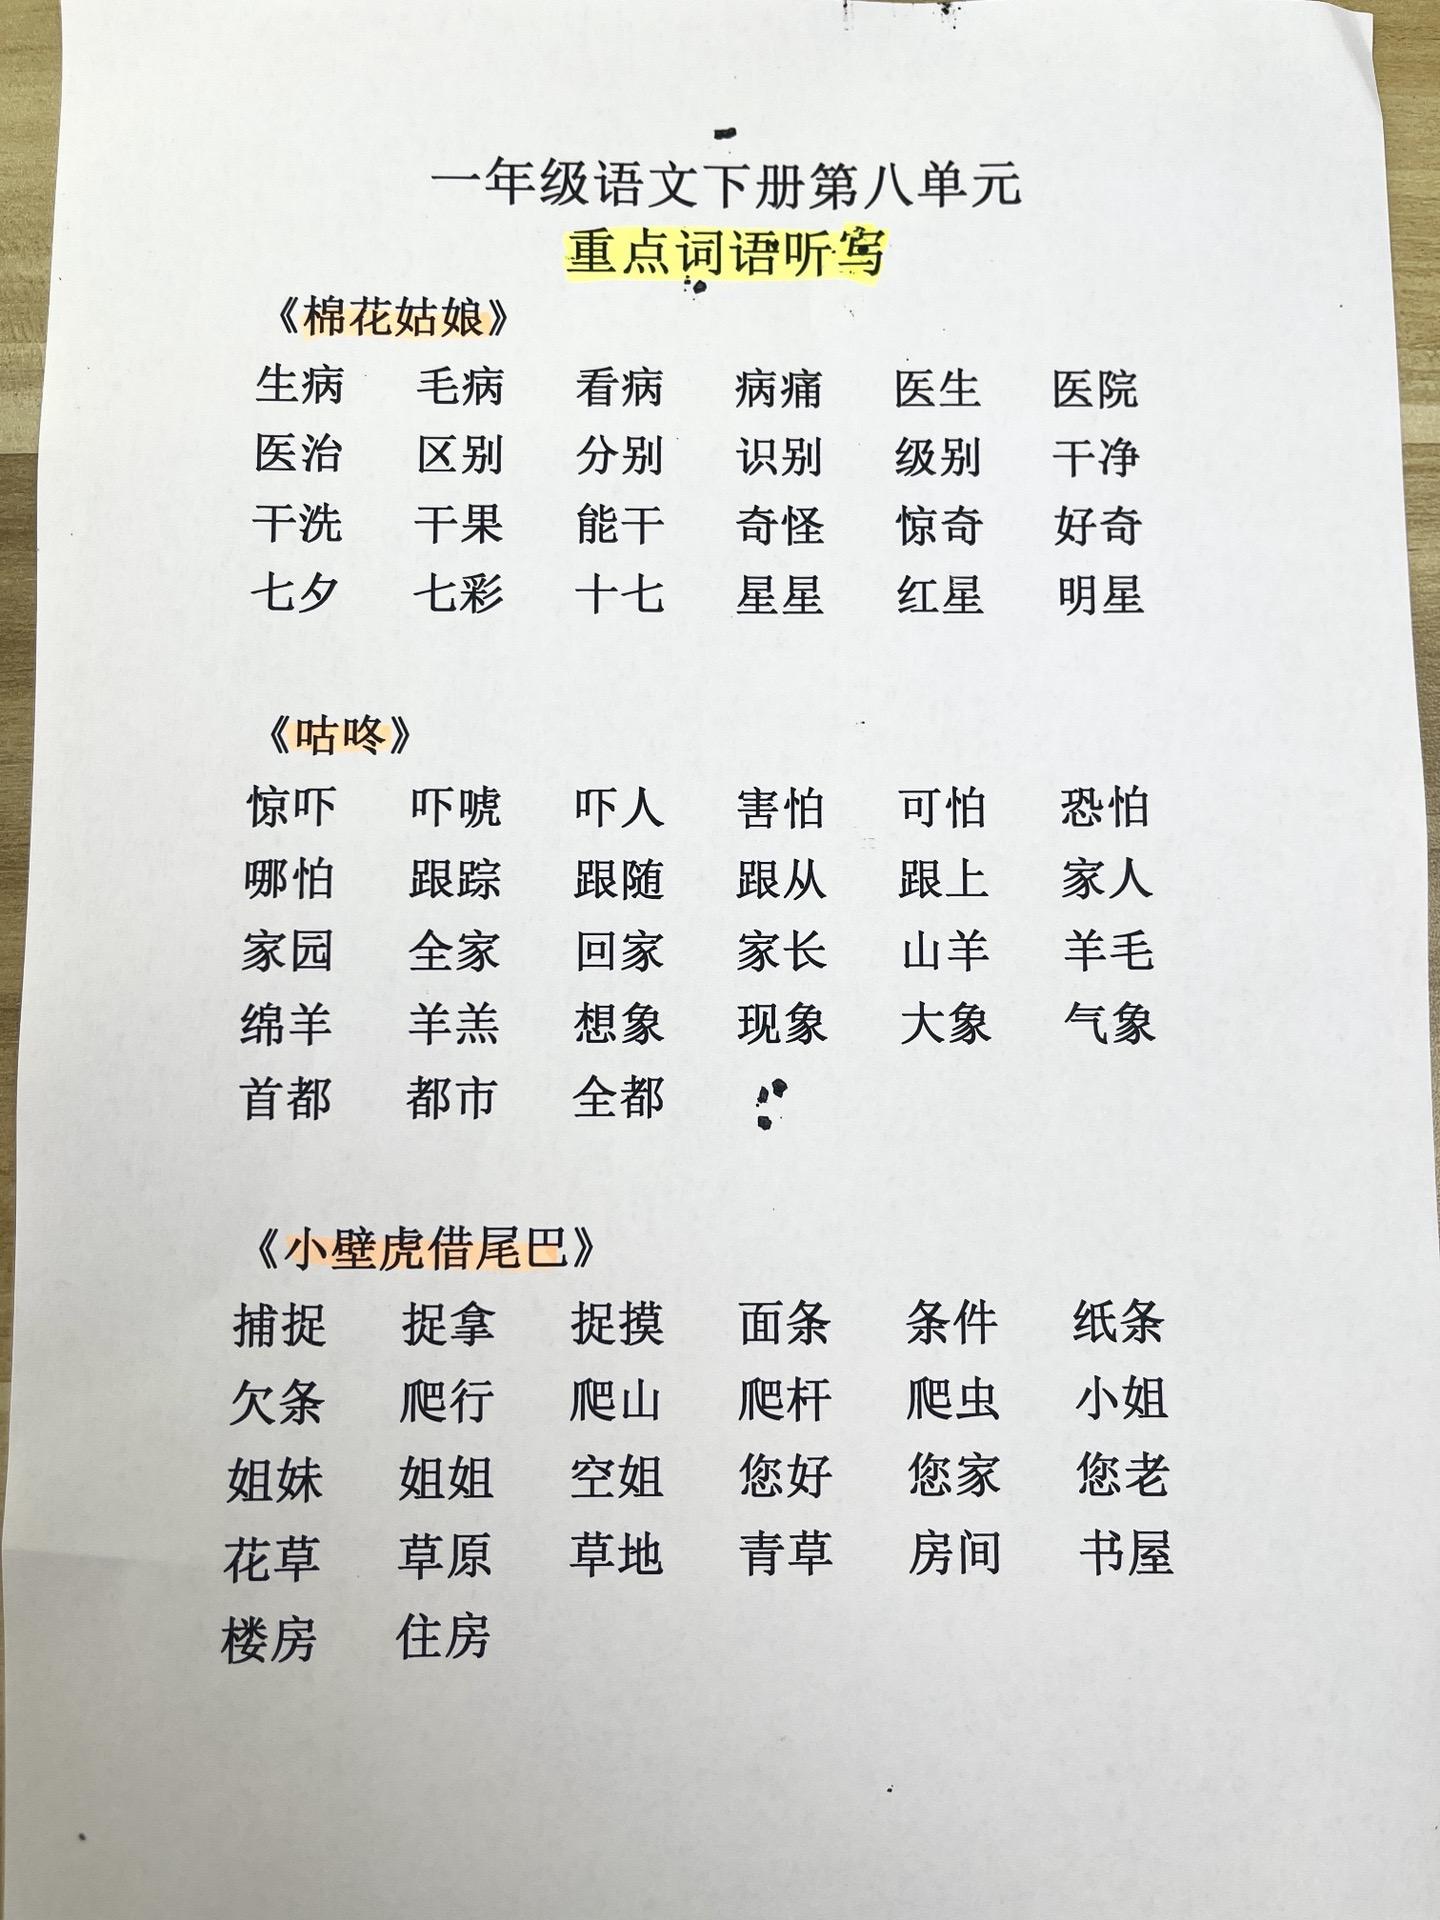 一年级语文下册第八单元
重点词语听写
《棉花姑娘》
生病 毛病 看病 病痛 医生 医院
医治 区别 分别 识别 级别 干净
干洗 干果 能干 奇怪 惊奇 好奇
七夕 七彩 十七 星星 红星 明星
《咕咚》
惊吓 吓唬 吓人 害怕 可怕 恐怕
哪怕 跟踪 跟随 跟从 跟上 家人
家园 全家 回家 家长 山羊 羊毛
绵羊 羊羔 想象 现象 大象 气象
首都 都市 全都
《小壁虎借尾巴》
捕捉 捉拿 捉摸 面条 条件 纸条
欠条 爬行 爬山 爬杆 爬虫 小姐
姐妹 姐姐 空姐 您好 您家 您老
花草 草原 草地 青草 房间 书屋
楼房 住房